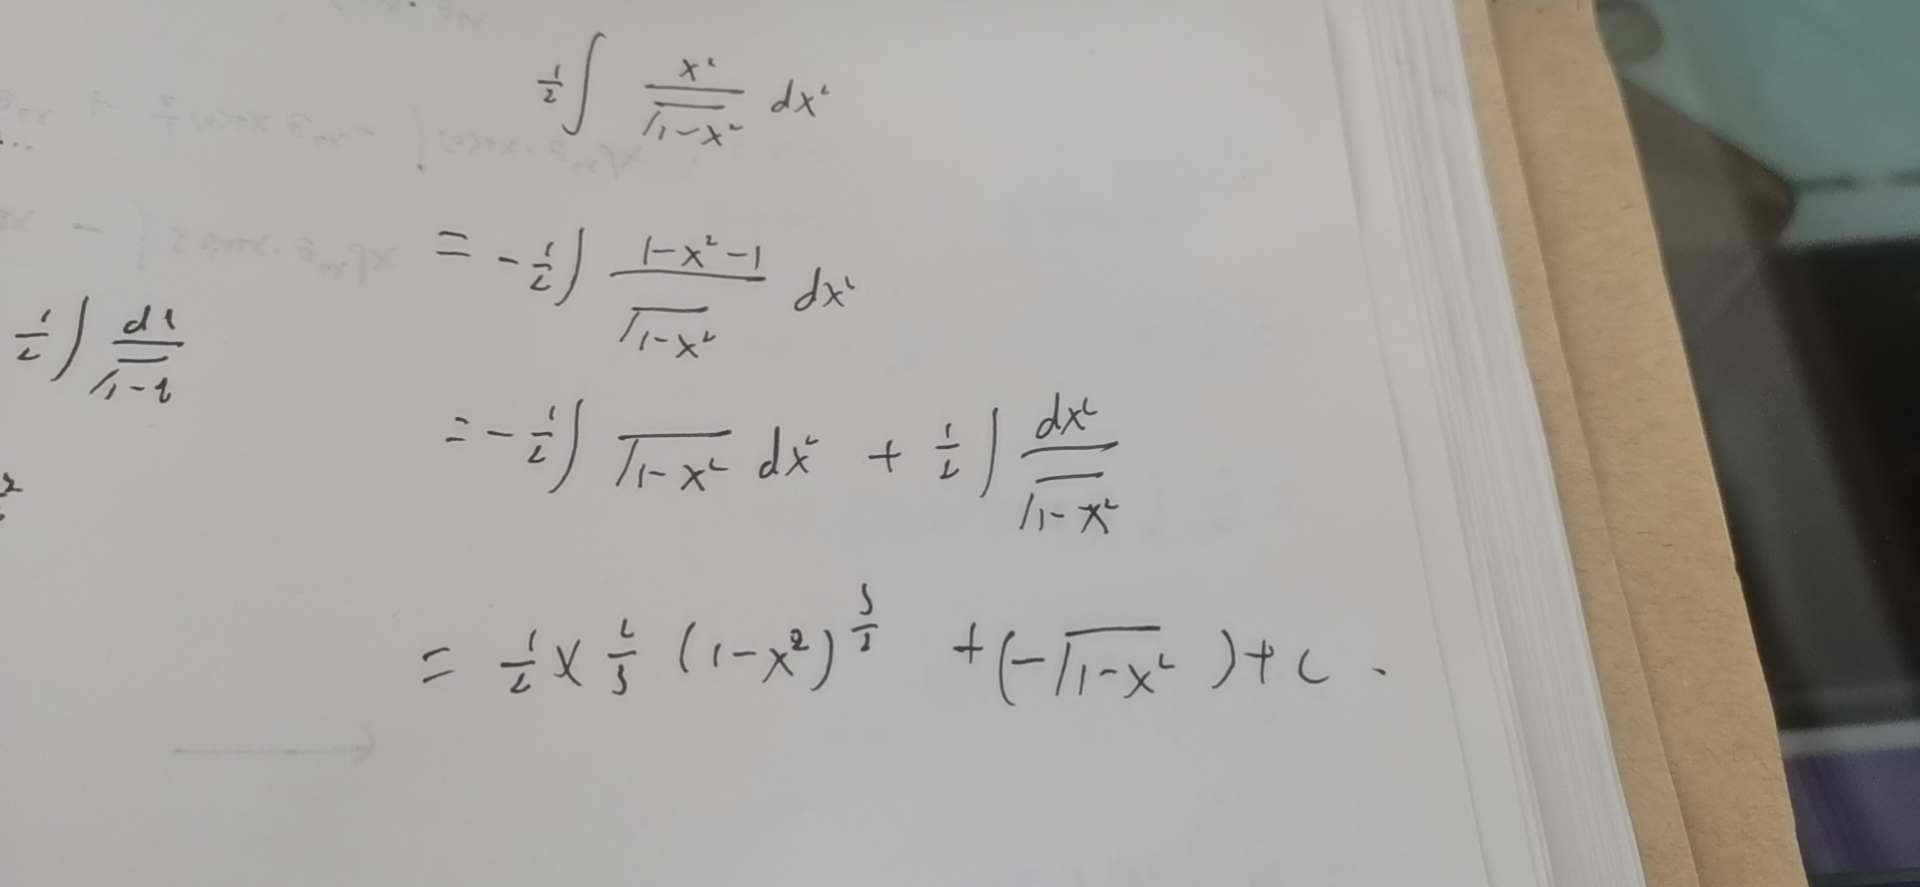 ½∫ x²/√(1-x²) dx²
= -½∫ (1-x²-1)/√(1-x²) dx²
½∫ dt/√(1-t)
= -½∫ √(1-x²) dx² + ½∫ dx²/√(1-x²)
= ½ × ⅔ (1-x²)^(3/2) + (-√(1-x²)) + C.